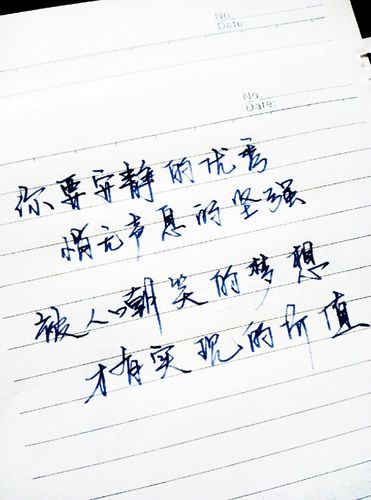 No.
Date
No.
Date:
你要安静的优秀
悄无声息的坚强
被人嘲笑的梦想
才有实现的价值